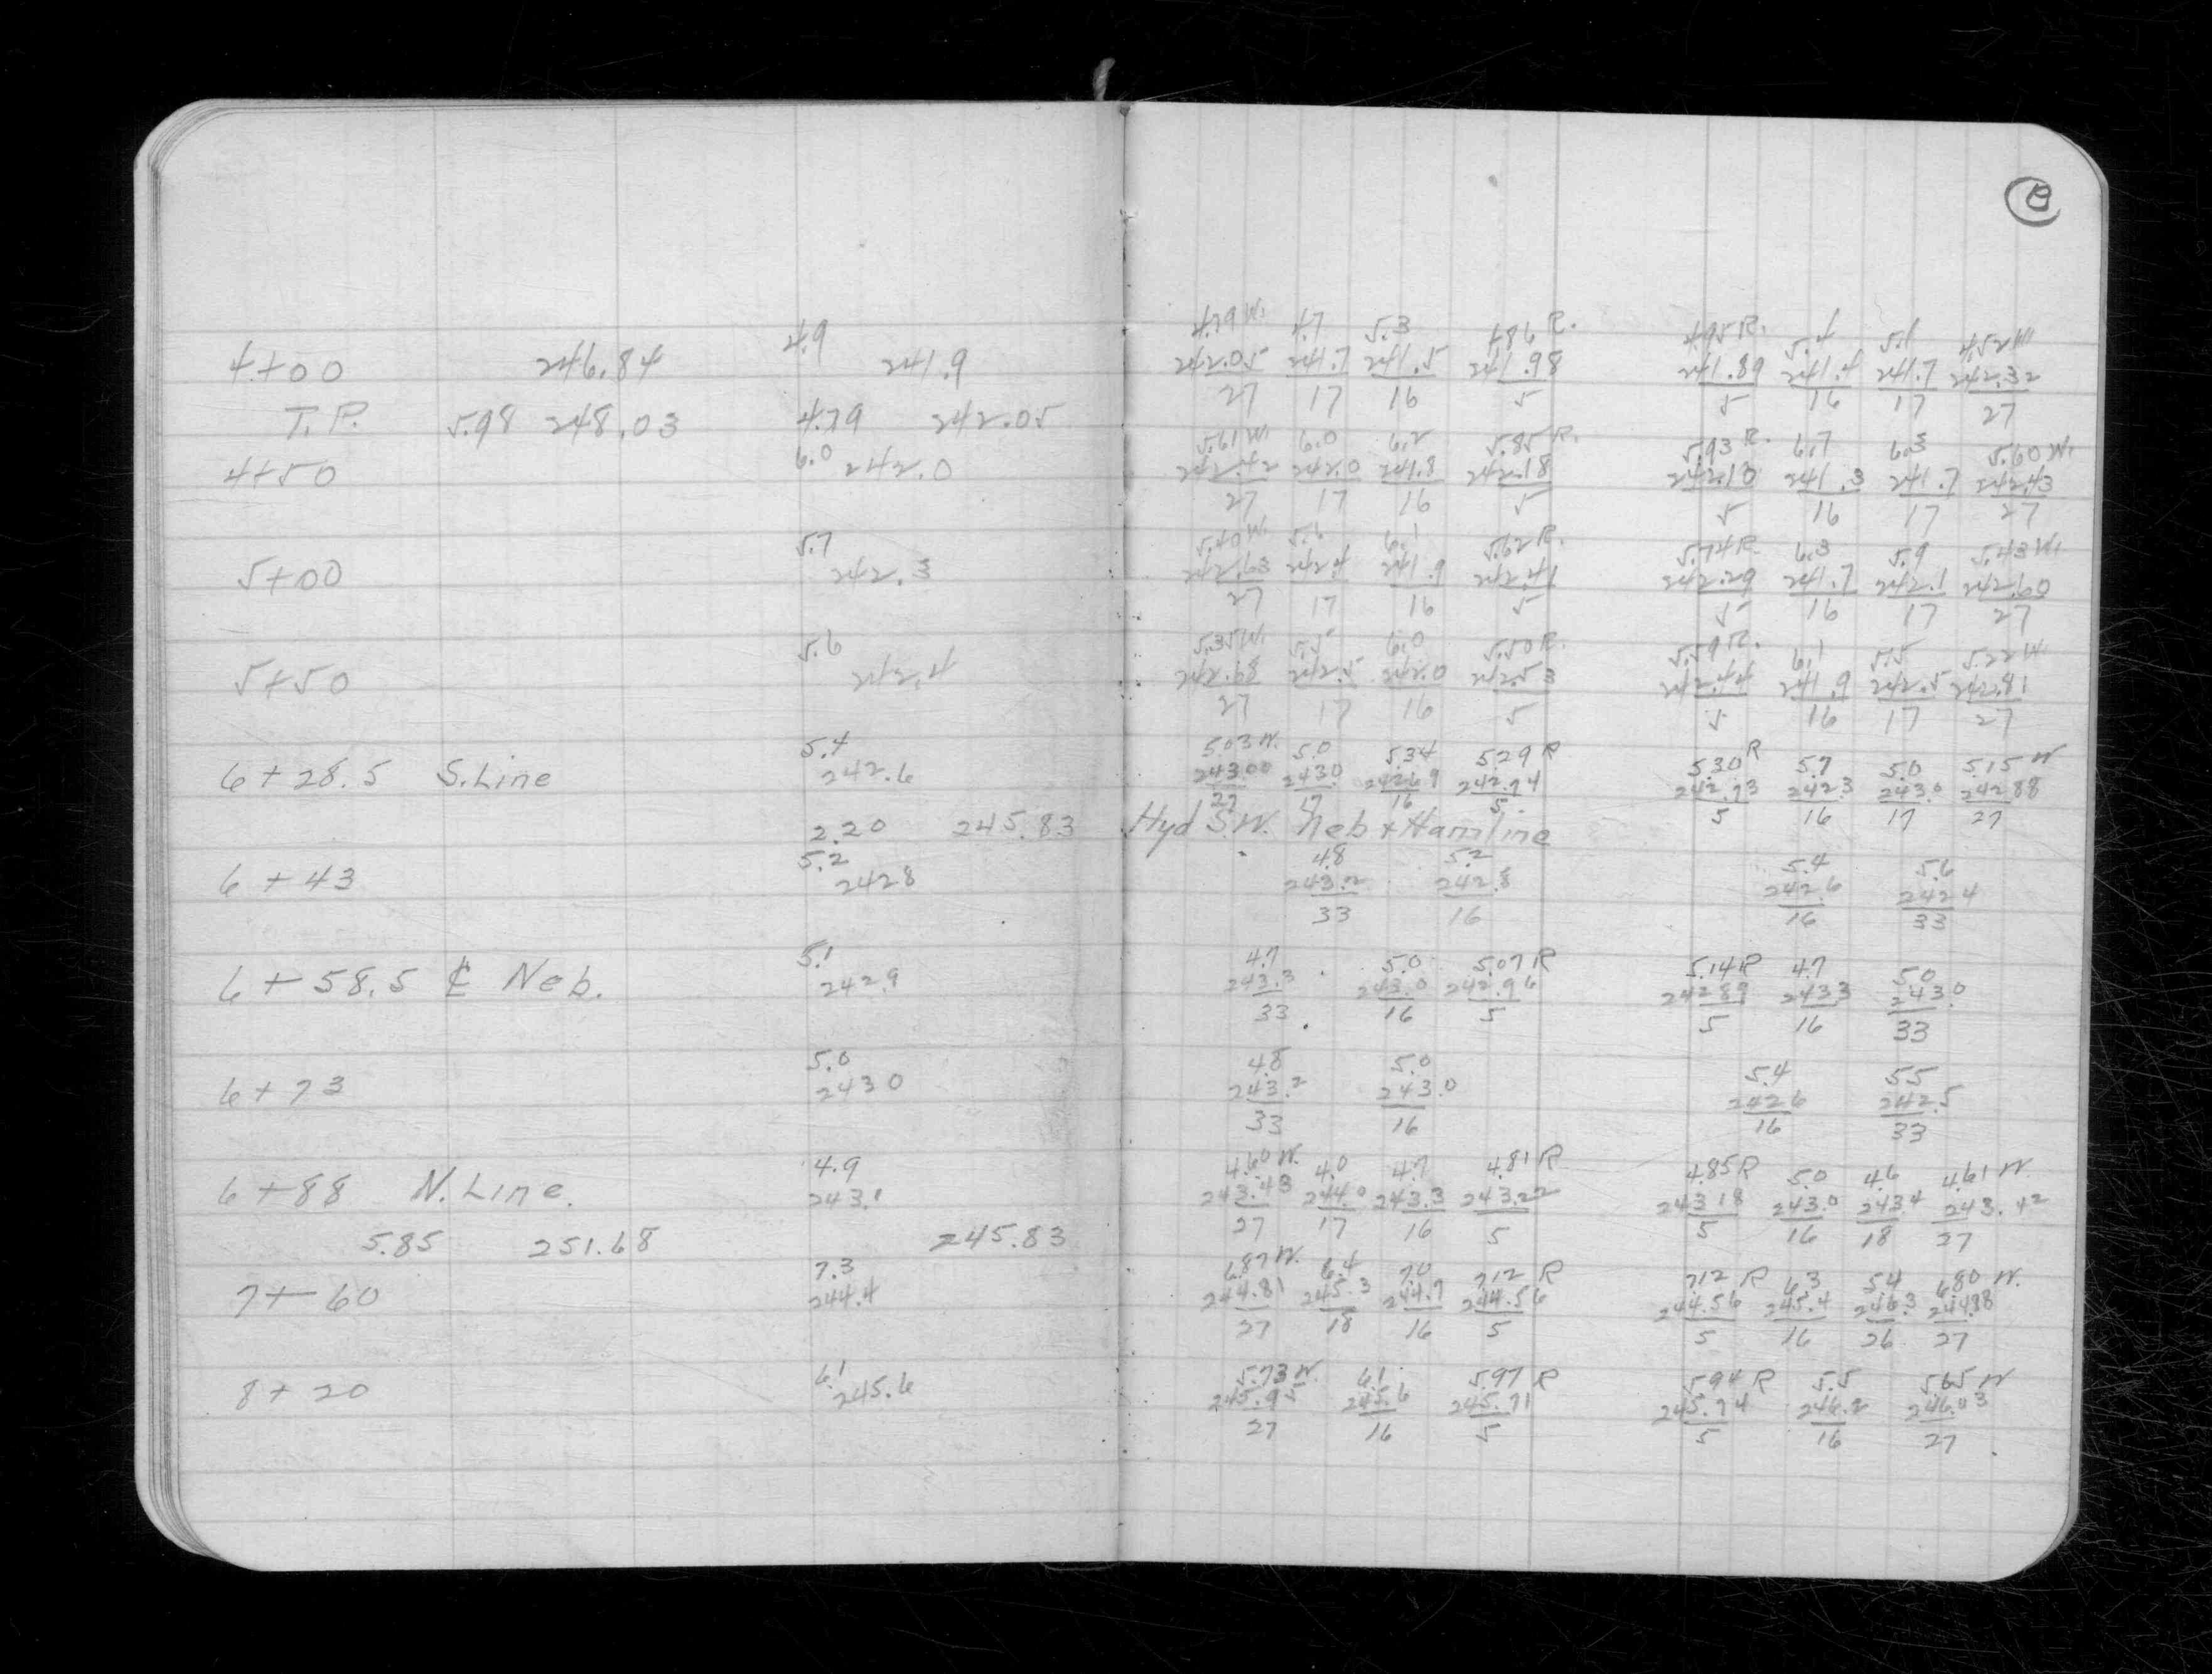 B
4.79 W. 4.7 5.3 4.86 R. 4.95 R. 5.4 5.1 4.52 W
4+00 246.84 4.9 241.9 242.05 241.7 241.5 241.98 241.89 241.4 241.7 242.32
27 17 16 5 5 16 17 27
T.P. 5.98 248.03 4.79 242.05
5.61 W. 6.0 6.2 5.85 R. 5.93 R. 6.7 6.3 5.60 W.
4+50 6.0 242.0 242.42 242.0 241.8 242.18 242.10 241.3 241.7 242.43
27 17 16 5 5 16 17 27
5.40 W. 5.6 6.1 5.62 R. 5.74 R. 6.3 5.9 5.43 W.
5+00 5.7 242.3 242.63 242.4 241.9 242.41 242.29 241.7 242.1 242.60
27 17 16 5 5 16 17 27
5.35 W. 5.5 6.0 5.50 R. 5.59 R. 6.1 5.5 5.22 W.
5+50 5.6 242.4 242.68 242.5 242.0 242.53 242.44 241.9 242.5 242.81
27 17 16 5 5 16 17 27
5.03 W. 5.0 5.34 5.29 R 5.30 R 5.7 5.0 5.15 W
6+28.5 S. Line 5.4 242.6 243.00 243.0 242.69 242.74 242.73 242.3 243.0 242.88
27 17 16 5 5 16 17 27
2.20 245.83 Hyd S.W. Neb + Hamline
4.8 5.2 5.4 5.6
6+43 5.2 242.8 243.2 242.8 242.6 242.4
33 16 16 33
4.7 5.0 5.07 R 5.14 R 4.7 5.0
6+58.5 ₵ Neb. 5.1 242.9 243.3 243.0 242.96 242.89 243.3 243.0
33 16 5 5 16 33
4.8 5.0 5.4 5.5
6+73 5.0 243.0 243.2 243.0 242.6 242.5
33 16 16 33
4.60 W. 4.0 4.7 4.81 R 4.85 R 5.0 4.6 4.61 W
6+88 N. Line. 4.9 243.1 243.43 244.0 243.3 243.22 243.18 243.0 243.4 243.42
27 17 16 5 5 16 18 27
5.85 251.68 245.83
6.87 W. 6.4 7.0 7.12 R 7.12 R 6.3 5.4 6.80 W.
7+60 7.3 244.4 244.81 245.3 244.7 244.56 244.56 245.4 246.3 244.88
27 18 16 5 5 16 26 27
5.73 W. 6.1 5.97 R 5.94 R 5.5 5.65 W
8+20 6.1 245.6 245.95 245.6 245.71 245.74 246.2 246.03
27 16 5 5 16 27